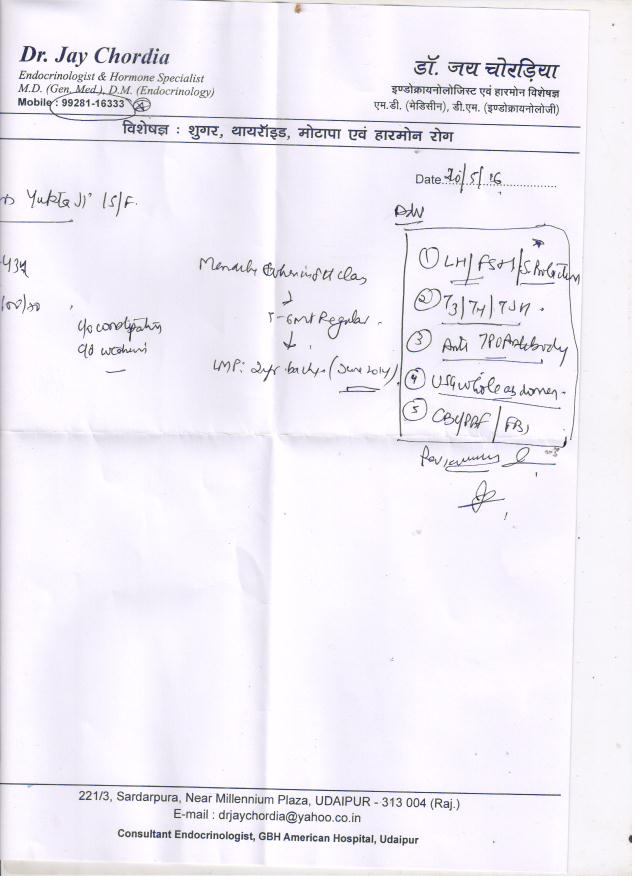 Dr. Jay Chordia
Endocrinologist & Hormone Specialist
M.D. (Gen. Med.), D.M. (Endocrinology)
Mobile : 99281-16333
डॉ. जय चोरड़िया
इण्डोक्रायनोलोजिस्ट एवं हारमोन विशेषज्ञ
एम.डी. (मेडिसीन), डी.एम. (इण्डोक्रायनोलोजी)
विशेषज्ञ : शुगर, थायरॉइड, मोटापा एवं हारमोन रोग
Date 20/5/16
Yukta Ji 15/F.
Adv
① LH/FSH/S. Prolactin
② T3/T4/TSH
③ Anti TPO Antibody
④ USG whole abdomen
⑤ CBC/PBF/FBS
class
5-6 mt Regular
LMP: 2 yr back (June 2014)
c/o constipation
c/o
221/3, Sardarpura, Near Millennium Plaza, UDAIPUR - 313 004 (Raj.)
E-mail : drjaychordia@yahoo.co.in
Consultant Endocrinologist, GBH American Hospital, Udaipur